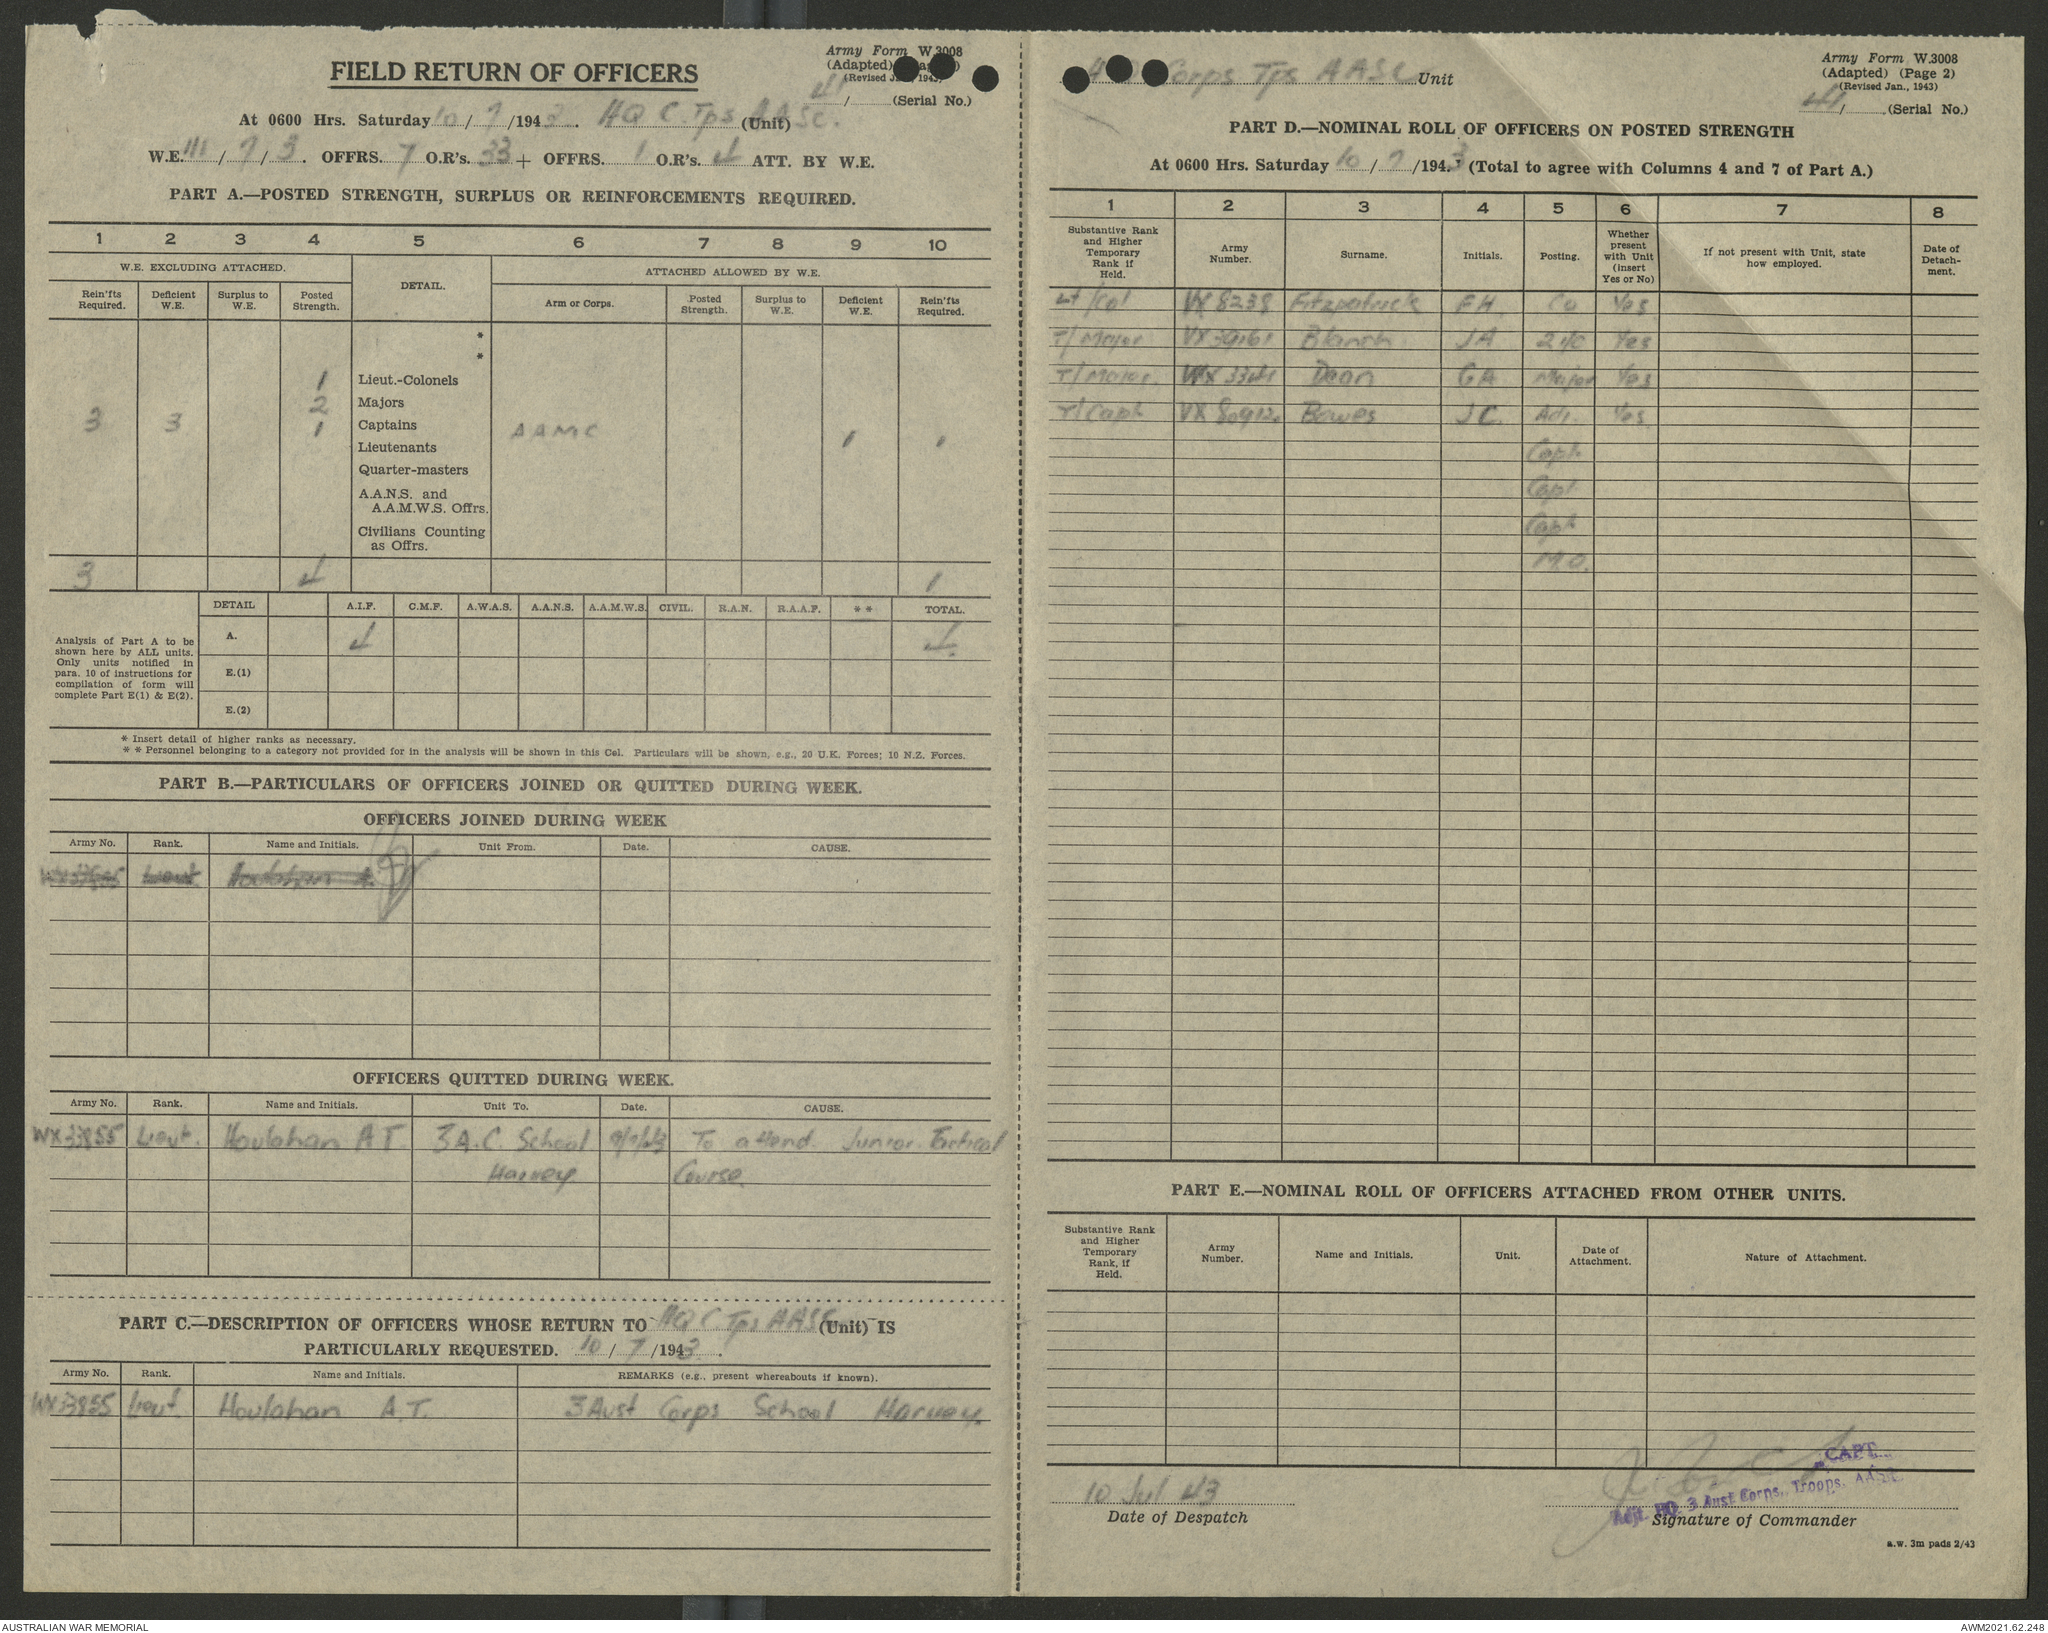 Army Form W.3008
(Adapted)
(Revised Jan., 1943)
FIELD RETURN OF OFFICERS
41/ (Serial No.)
At 0600 Hrs. Saturday 10/7/1943. HQ C. Tps AASC. (Unit)
W.E. III/7/3. OFFRS. 7 O.R's. 33 + OFFRS. 1 O.R's. 4 ATT. BY W.E.
PART A.—POSTED STRENGTH, SURPLUS OR REINFORCEMENTS REQUIRED.
1 2 3 4 5 6 7 8 9 10
W.E. EXCLUDING ATTACHED. DETAIL. ATTACHED ALLOWED BY W.E.
Rein'fts Required. Deficient W.E. Surplus to W.E. Posted Strength. Arm or Corps. Posted Strength. Surplus to W.E. Deficient W.E. Rein'fts Required.
*
*
1 Lieut.-Colonels
2 Majors
3 3 1 Captains AAMC 1 1
Lieutenants
Quarter-masters
A.A.N.S. and
A.A.M.W.S. Offrs.
Civilians Counting
as Offrs.
3 4 1
DETAIL A.I.F. C.M.F. A.W.A.S. A.A.N.S. A.A.M.W.S. CIVIL. R.A.N. R.A.A.F. * * TOTAL.
Analysis of Part A to be
shown here by ALL units.
Only units notified in
para. 10 of instructions for
compilation of form will
complete Part E(1) & E(2).
A. 4 4.
E.(1)
E.(2)
* Insert detail of higher ranks as necessary.
* * Personnel belonging to a category not provided for in the analysis will be shown in this Col. Particulars will be shown, e.g., 20 U.K. Forces; 10 N.Z. Forces.
PART B.—PARTICULARS OF OFFICERS JOINED OR QUITTED DURING WEEK.
OFFICERS JOINED DURING WEEK
Army No. Rank. Name and Initials. Unit From. Date. CAUSE.
Lieut Houlahan A.
OFFICERS QUITTED DURING WEEK.
Army No. Rank. Name and Initials. Unit To. Date. CAUSE.
Lieut. Houlahan AT 3 A.C. School 9/7/43 To attend Junior Tactical
Harvey Course.
PART C.—DESCRIPTION OF OFFICERS WHOSE RETURN TO HQ C Tps AASC (Unit) IS
PARTICULARLY REQUESTED. 10/7/1943.
Army No. Rank. Name and Initials. REMARKS (e.g., present whereabouts if known).
WX33855 Lieut. Houlahan A.T. 3 Aust Corps School Harvey.
Army Form W.3008
(Adapted) (Page 2)
(Revised Jan., 1943)
Corps Tps AASC Unit
41/ (Serial No.)
PART D.—NOMINAL ROLL OF OFFICERS ON POSTED STRENGTH
At 0600 Hrs. Saturday 10/7/1943 (Total to agree with Columns 4 and 7 of Part A.)
1 2 3 4 5 6 7 8
Substantive Rank and Higher Temporary Rank if Held. Army Number. Surname. Initials. Posting. Whether present with Unit (insert Yes or No) If not present with Unit, state how employed. Date of Detach-ment.
Lt/Col VX8238 Fitzpatrick FH. Co Yes
T/Major VX39161 Blanch JA 2i/c Yes
T/Major WX3341 Dean GA Major Yes
T/Capt VX80912 Bowes JC. Adj. Yes
Capt.
Capt
Capt
M.O.
PART E.—NOMINAL ROLL OF OFFICERS ATTACHED FROM OTHER UNITS.
Substantive Rank and Higher Temporary Rank, if Held. Army Number. Name and Initials. Unit. Date of Attachment. Nature of Attachment.
10 Jul 43
Date of Despatch
CAPT.
Adjt. HQ. 3 Aust Corps. Troops. AASC.
Signature of Commander
a.w. 3m pads 2/43
AUSTRALIAN WAR MEMORIAL
AWM2021.62.248